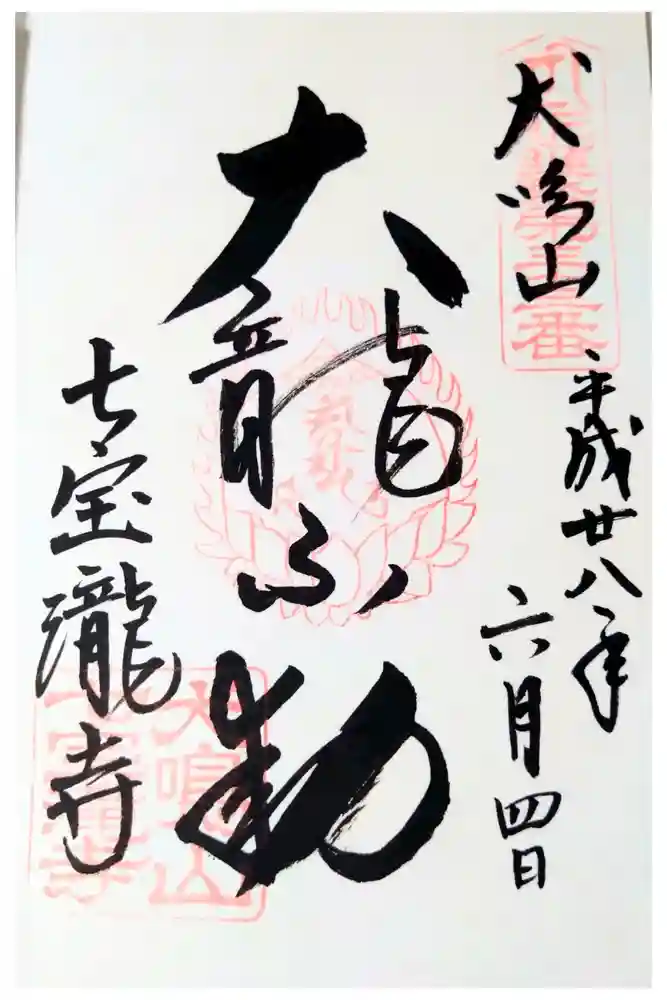 犬鳴山
平成廿八年
六月四日
大龍不動
七宝瀧寺
犬鳴山
七寳瀧寺